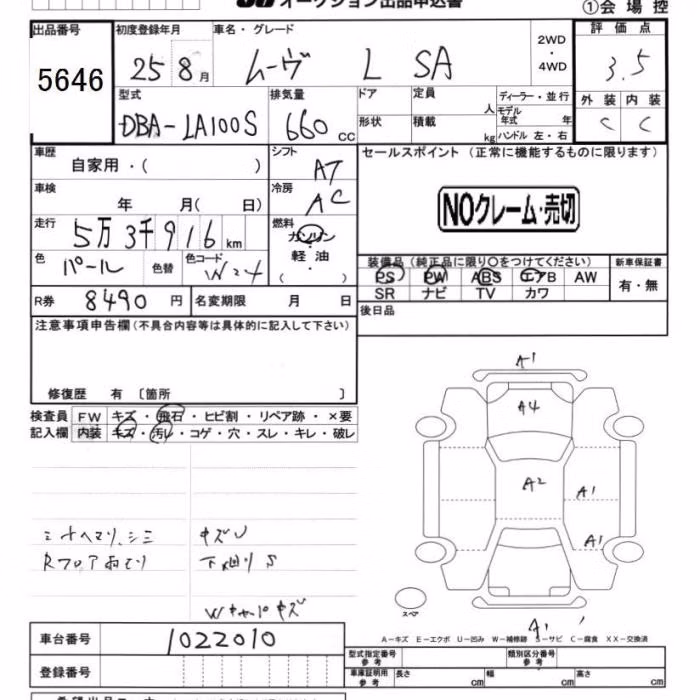 オークション出品申込書
①会場控
出品番号 初度登録年月 車名・グレード 評価点
5646 25 8月 ムーヴ L SA 2WD・4WD 3.5
型式 排気量 ドア 定員 人 ディーラー・並行 外装 内装
DBA-LA100S 660cc 形状 積載 kg モデル年式 年 ハンドル 左・右 C C
車歴 シフト セールスポイント (正常に機能するものに限ります)
自家用・( ) AT
車検 冷房 NOクレーム・売切
年 月( 日) AC
走行 燃料
5万3千916km ガソリン・軽油・( )
色 パール 色替 色コード W24
装備品(純正品に限り○をつけてください) 新車保証書
PS PW ABS エアB AW 有・無
SR ナビ TV カワ
R券 8490円 名変期限 月 日 後日品
注意事項申告欄(不具合内容等は具体的に記入して下さい)
修復歴 有 〔箇所 〕
検査員 FW キズ・飛石・ヒビ割・リペア跡・×要
記入欄 内装 キズ・汚レ・コゲ・穴・スレ・キレ・破レ
A1
A4
A2
A1
A1
シミ
キズU
Rフロア
下廻りS
キズ
スペア
A1
A－キズ E－エクボ U－凹み W－補修跡 S－サビ C－腐食 XX－交換済
車台番号 1022010
型式指定番号 参考 類別区分番号 参考
登録番号 車庫証明用 参考 長さ cm 幅 cm 高さ cm